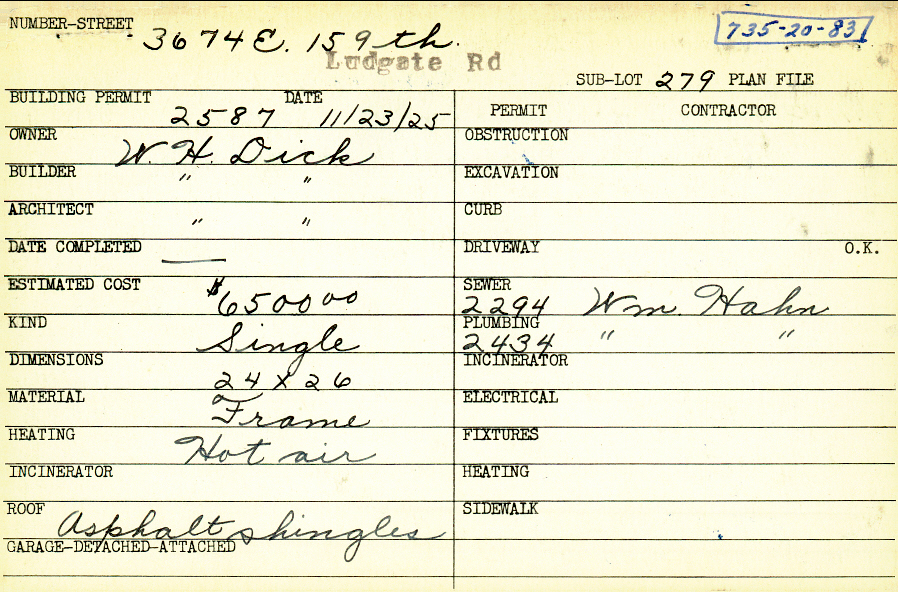 NUMBER-STREET 3674 E. 159th. 735-20-83
Ludgate Rd
SUB-LOT 279 PLAN FILE
BUILDING PERMIT 2587 DATE 11/23/25
PERMIT CONTRACTOR
OWNER W. H. Dick
OBSTRUCTION
BUILDER " "
EXCAVATION
ARCHITECT " "
CURB
DATE COMPLETED —
DRIVEWAY O.K.
ESTIMATED COST $6500 00
SEWER 2294 Wm. Hahn
KIND Single
PLUMBING 2434 " "
DIMENSIONS 24 x 26
INCINERATOR
MATERIAL Frame
ELECTRICAL
HEATING Hot air
FIXTURES
INCINERATOR
HEATING
ROOF Asphalt shingles
SIDEWALK
GARAGE-DETACHED-ATTACHED